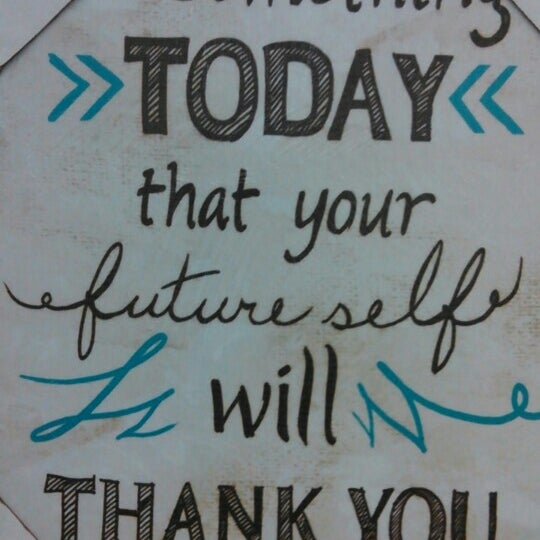 something
TODAY
that your
future self
will
THANK YOU